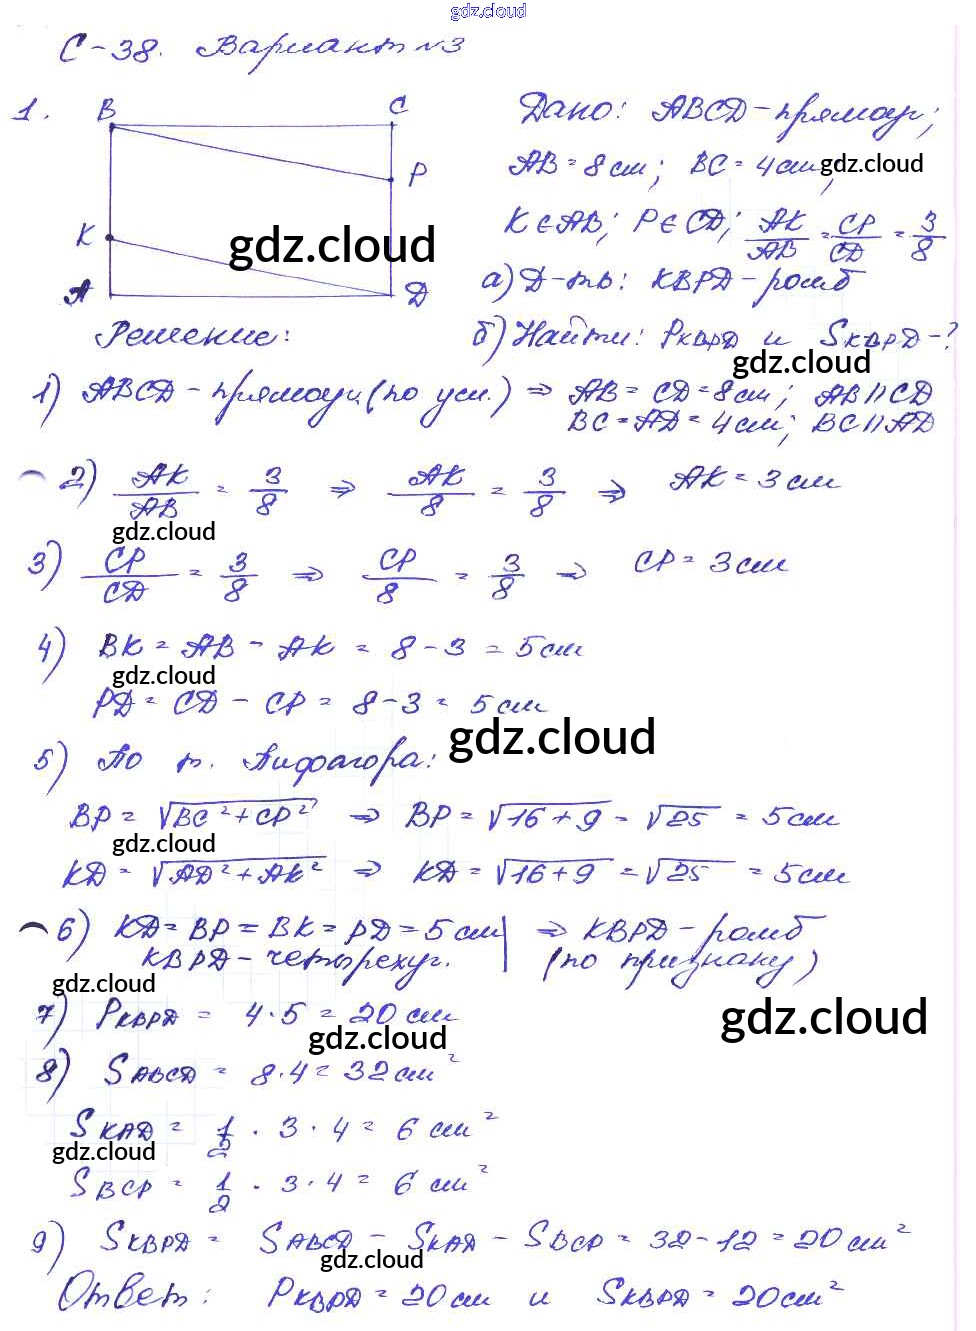 gdz.cloud
С-38. Вариант №3
1.
B C
P
K
A D
gdz.cloud
Дано: ABCD - прямоуг;
AB = 8 см; BC = 4 см;
gdz.cloud
K ∈ AB; P ∈ CD; AK/AB = CP/CD = 3/8
а) Д-ть: KBPD - ромб
Решение:
б) Найти: P_KBPD и S_KBPD - ?
gdz.cloud
1) ABCD - прямоуг (по усл.) ⇒ AB = CD = 8 см; AB || CD
BC = AD = 4 см; BC || AD
2) AK/AB = 3/8 ⇒ AK/8 = 3/8 ⇒ AK = 3 см
gdz.cloud
3) CP/CD = 3/8 ⇒ CP/8 = 3/8 ⇒ CP = 3 см
4) BK = AB - AK = 8 - 3 = 5 см
gdz.cloud
PD = CD - CP = 8 - 3 = 5 см
gdz.cloud
5) По т. Пифагора:
BP = √(BC² + CP²) ⇒ BP = √(16 + 9) = √25 = 5 см
gdz.cloud
KD = √(AD² + AK²) ⇒ KD = √(16 + 9) = √25 = 5 см
6) KD = BP = BK = PD = 5 см | ⇒ KBPD - ромб
KBPD - четырехуг. | (по признаку)
gdz.cloud
7) P_KBPD = 4 · 5 = 20 см
gdz.cloud
gdz.cloud
8) S_ABCD = 8 · 4 = 32 см²
S_KAD = 1/2 · 3 · 4 = 6 см²
gdz.cloud
S_BCP = 1/2 · 3 · 4 = 6 см²
9) S_KBPD = S_ABCD - S_KAD - S_BCP = 32 - 12 = 20 см²
gdz.cloud
Ответ: P_KBPD = 20 см и S_KBPD = 20 см²